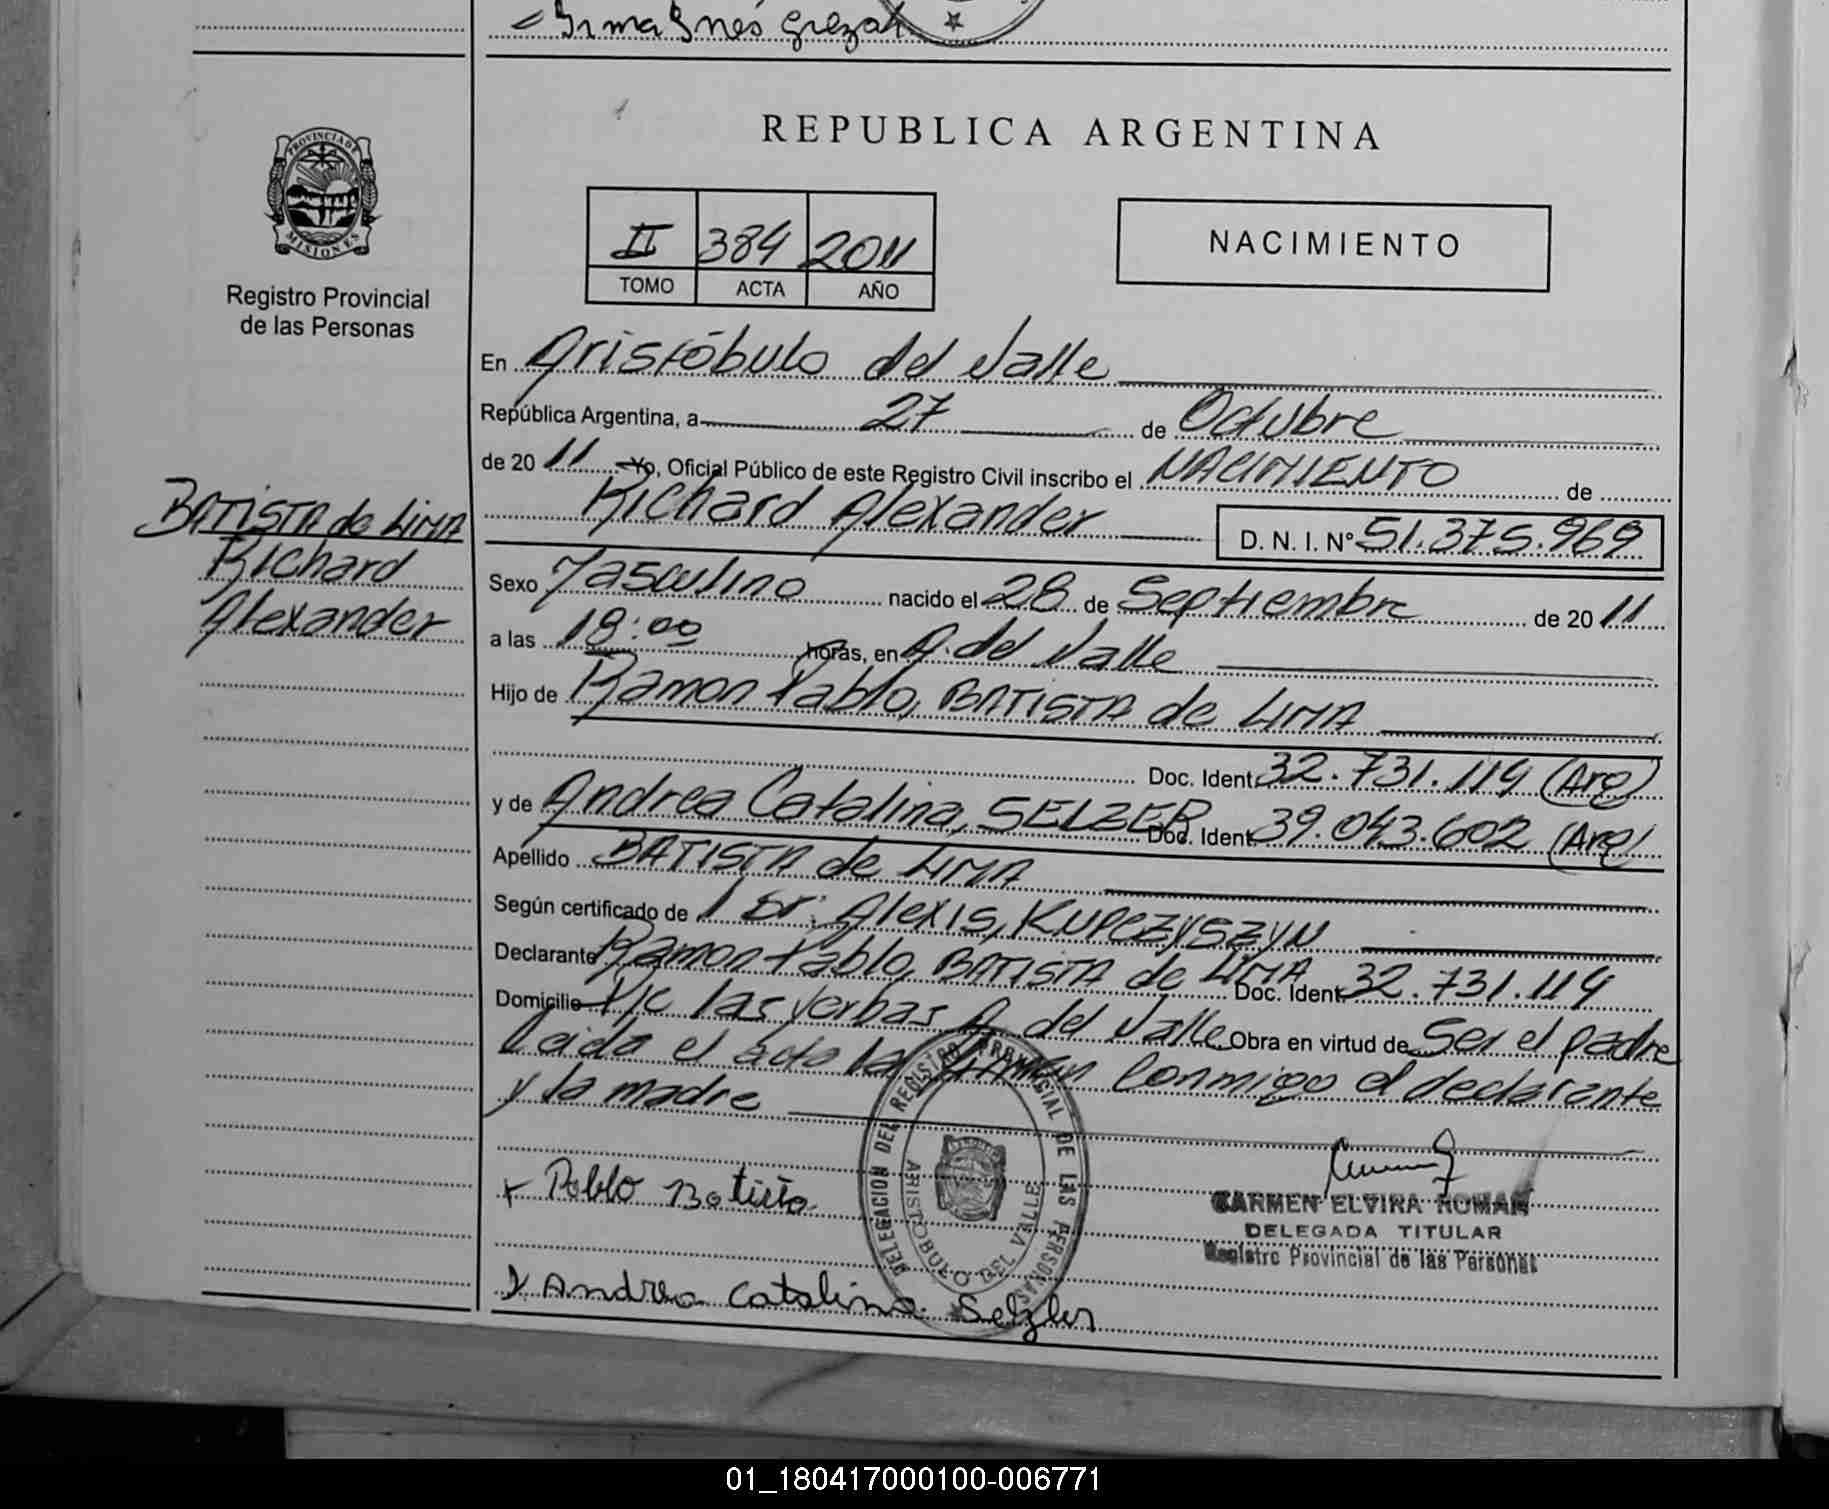 Irma Ines Grezak
PROVINCIA DE
MISIONES
Registro Provincial
de las Personas
BATISTA de LIMA
Richard
Alexander
REPUBLICA ARGENTINA
II 384 2011
TOMO ACTA AÑO
NACIMIENTO
En Aristóbulo del Valle
República Argentina, a 27 de Octubre
de 20 11 Yo, Oficial Público de este Registro Civil inscribo el NACIMIENTO de
Richard Alexander D. N. I. N° 51.375.969
Sexo Masculino nacido el 28 de Septiembre de 20 11
a las 18:00 horas, en A. del Valle
Hijo de Ramon Pablo, BATISTA de LIMA
Doc. Ident. 32.731.119 (Arg)
y de Andrea Catalina, SELZER Doc. Ident. 39.043.602 (Arg)
Apellido BATISTA de LIMA
Según certificado de Dr: Alexis, KUPCZYSZYN
Declarante Ramon Pablo, BATISTA de LIMA Doc. Ident. 32.731.119
Domicilio Pje las Yerbas A. del Valle Obra en virtud de Ser el padre
Leida el acta la firman Conmigo el declarante
y la madre
DELEGACION DEL REGISTRO PROVINCIAL DE LAS PERSONAS
ARISTOBULO DEL VALLE
Pablo Batista
Andrea Catalina Selzler
CARMEN ELVIRA ROMAN
DELEGADA TITULAR
Registro Provincial de las Personas
01_180417000100-006771